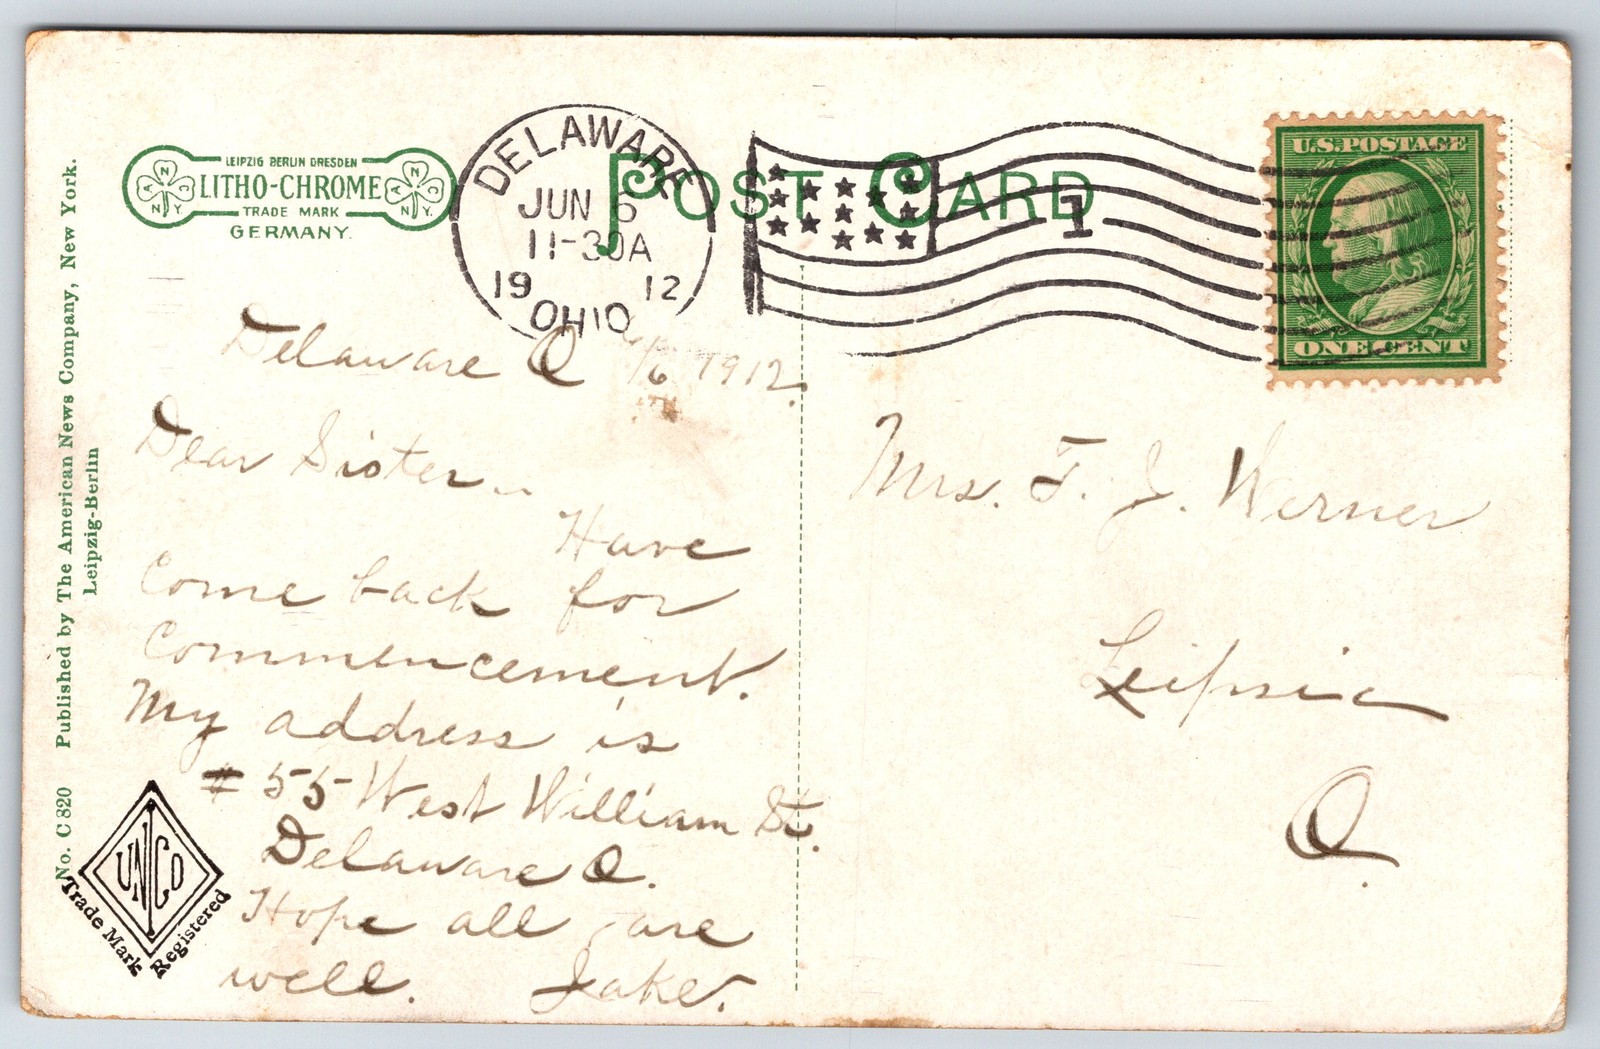 LEIPZIG BERLIN DRESDEN
LITHO-CHROME
TRADE MARK
GERMANY.
A N C N.Y.
A N C N.Y.
POST CARD
DELAWARE
JUN 6
11-30A
19 12
OHIO
1
U.S. POSTAGE
ONE CENT
No. C 820 Published by The American News Company, New York.
Leipzig-Berlin
Delaware O 6/6 1912.
Dear Sister..
Have
come back for
Commencement.
My address is
# 55 West William St.
Delaware O.
Hope all are
well. Jake.
Mrs. F. J. Werner
Leipsic
O.
UNICO
Trade Mark Registered